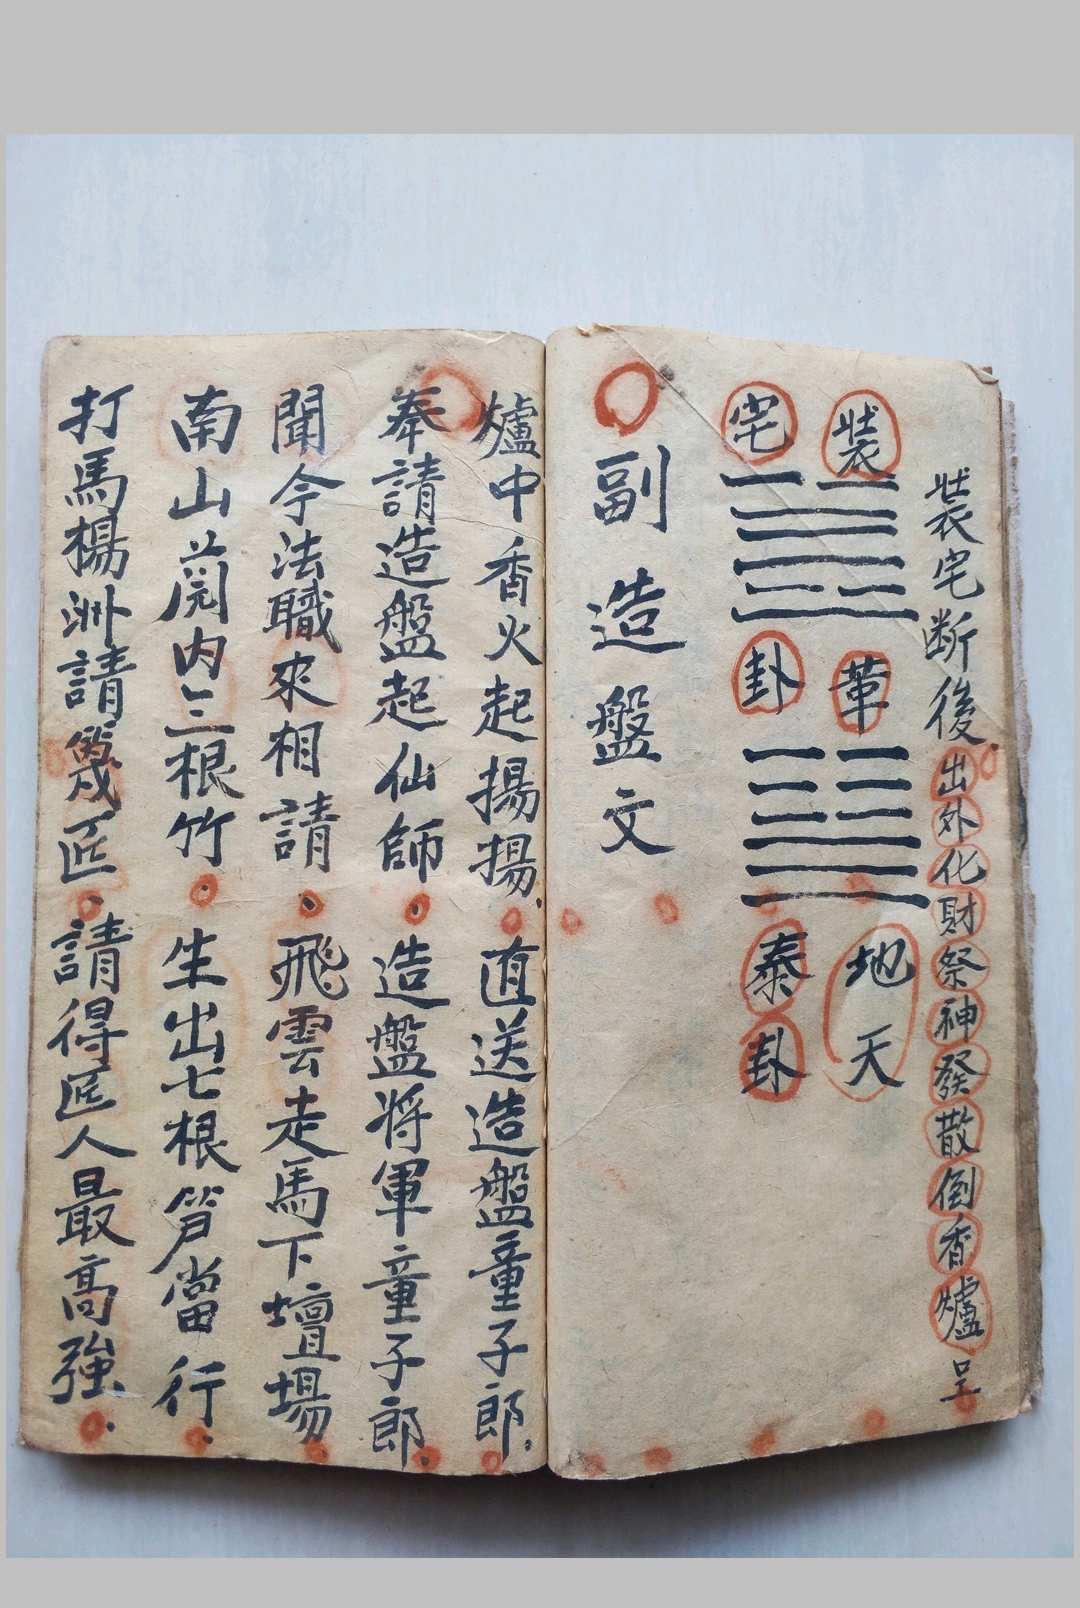 裝宅断後出外化財祭神發散倒香爐呈
裝 革 地天
宅 卦 泰卦
副造盤文
爐中香火起揚揚．直送造盤童子郎．
奉請造盤起仙師．造盤将軍童子郎．
聞今法職來相請．飛雲走馬下壇場．
南山蕳内三根竹．生出七根笋當行．
打馬楊洲請篾匠．請得匠人最高強．